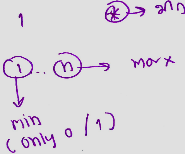 1 * → ann
1 .. n → max
min
(only 0/1)